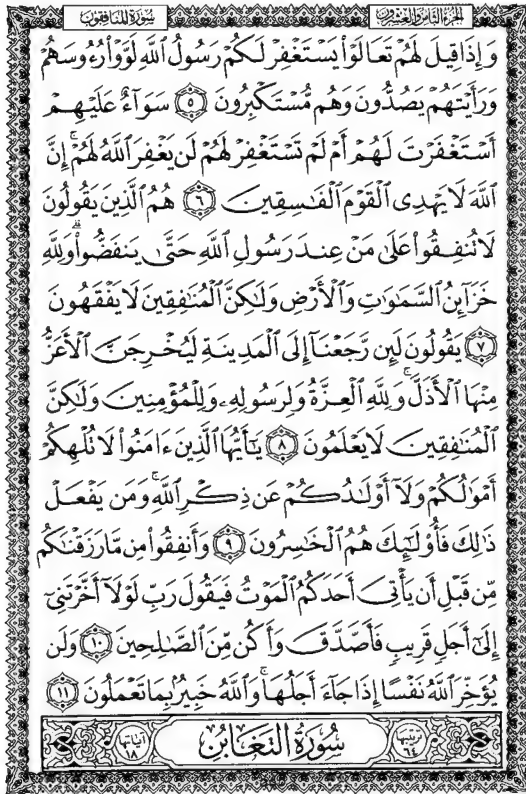 الجزء الثامن والعشرون
سورة المنافقون
وَإِذَا قِيلَ لَهُمْ تَعَالَوْا۟ يَسْتَغْفِرْ لَكُمْ رَسُولُ ٱللَّهِ لَوَّوْا۟ رُءُوسَهُمْ
وَرَأَيْتَهُمْ يَصُدُّونَ وَهُم مُّسْتَكْبِرُونَ ٥ سَوَآءٌ عَلَيْهِمْ
أَسْتَغْفَرْتَ لَهُمْ أَمْ لَمْ تَسْتَغْفِرْ لَهُمْ لَن يَغْفِرَ ٱللَّهُ لَهُمْ ۚ إِنَّ
ٱللَّهَ لَا يَهْدِى ٱلْقَوْمَ ٱلْفَٰسِقِينَ ٦ هُمُ ٱلَّذِينَ يَقُولُونَ
لَا تُنفِقُوا۟ عَلَىٰ مَنْ عِندَ رَسُولِ ٱللَّهِ حَتَّىٰ يَنفَضُّوا۟ ۗ وَلِلَّهِ
خَزَآئِنُ ٱلسَّمَٰوَٰتِ وَٱلْأَرْضِ وَلَٰكِنَّ ٱلْمُنَٰفِقِينَ لَا يَفْقَهُونَ
٧ يَقُولُونَ لَئِن رَّجَعْنَآ إِلَى ٱلْمَدِينَةِ لَيُخْرِجَنَّ ٱلْأَعَزُّ
مِنْهَا ٱلْأَذَلَّ ۚ وَلِلَّهِ ٱلْعِزَّةُ وَلِرَسُولِهِۦ وَلِلْمُؤْمِنِينَ وَلَٰكِنَّ
ٱلْمُنَٰفِقِينَ لَا يَعْلَمُونَ ٨ يَٰٓأَيُّهَا ٱلَّذِينَ ءَامَنُوا۟ لَا تُلْهِكُمْ
أَمْوَٰلُكُمْ وَلَآ أَوْلَٰدُكُمْ عَن ذِكْرِ ٱللَّهِ ۚ وَمَن يَفْعَلْ
ذَٰلِكَ فَأُو۟لَٰٓئِكَ هُمُ ٱلْخَٰسِرُونَ ٩ وَأَنفِقُوا۟ مِن مَّا رَزَقْنَٰكُم
مِّن قَبْلِ أَن يَأْتِىَ أَحَدَكُمُ ٱلْمَوْتُ فَيَقُولَ رَبِّ لَوْلَآ أَخَّرْتَنِىٓ
إِلَىٰٓ أَجَلٍ قَرِيبٍ فَأَصَّدَّقَ وَأَكُن مِّنَ ٱلصَّٰلِحِينَ ١٠ وَلَن
يُؤَخِّرَ ٱللَّهُ نَفْسًا إِذَا جَآءَ أَجَلُهَا ۚ وَٱللَّهُ خَبِيرٌۢ بِمَا تَعْمَلُونَ ١١
ترتيبها ٦٤ سُورَةُ التَّغَابُنِ آياتها ١٨